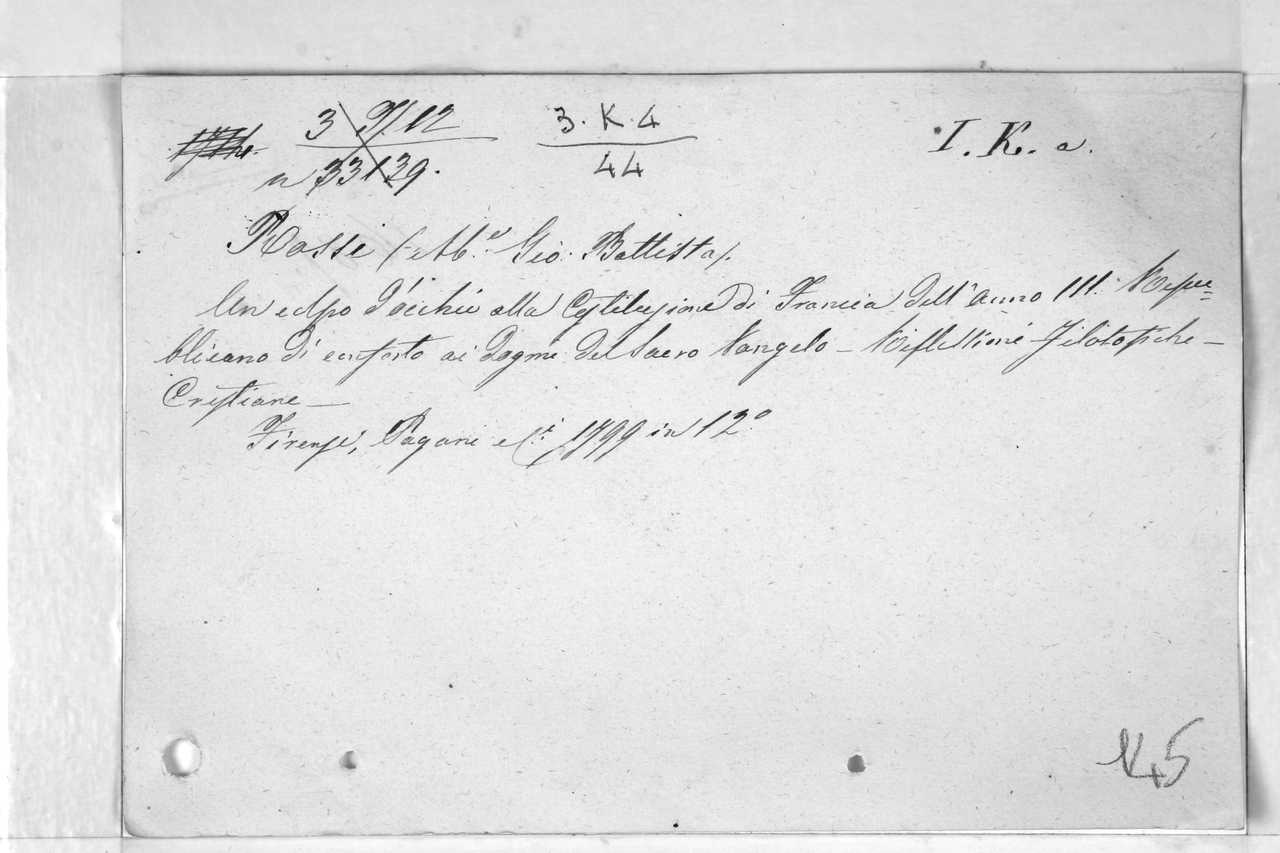 3 I.12 3.K.4 I.K.a.
n 33139. 44
Rossi (Ab.e Gio. Battista).
Un colpo d'occhio alla Costituzione di Francia dell'anno III. Repu=
blicano di confronto ai Dogmi del Sacro Vangelo - Riflessioni Filosofiche -
Cristiane -
Firenze, Pagani e C.i 1799 in 12.o